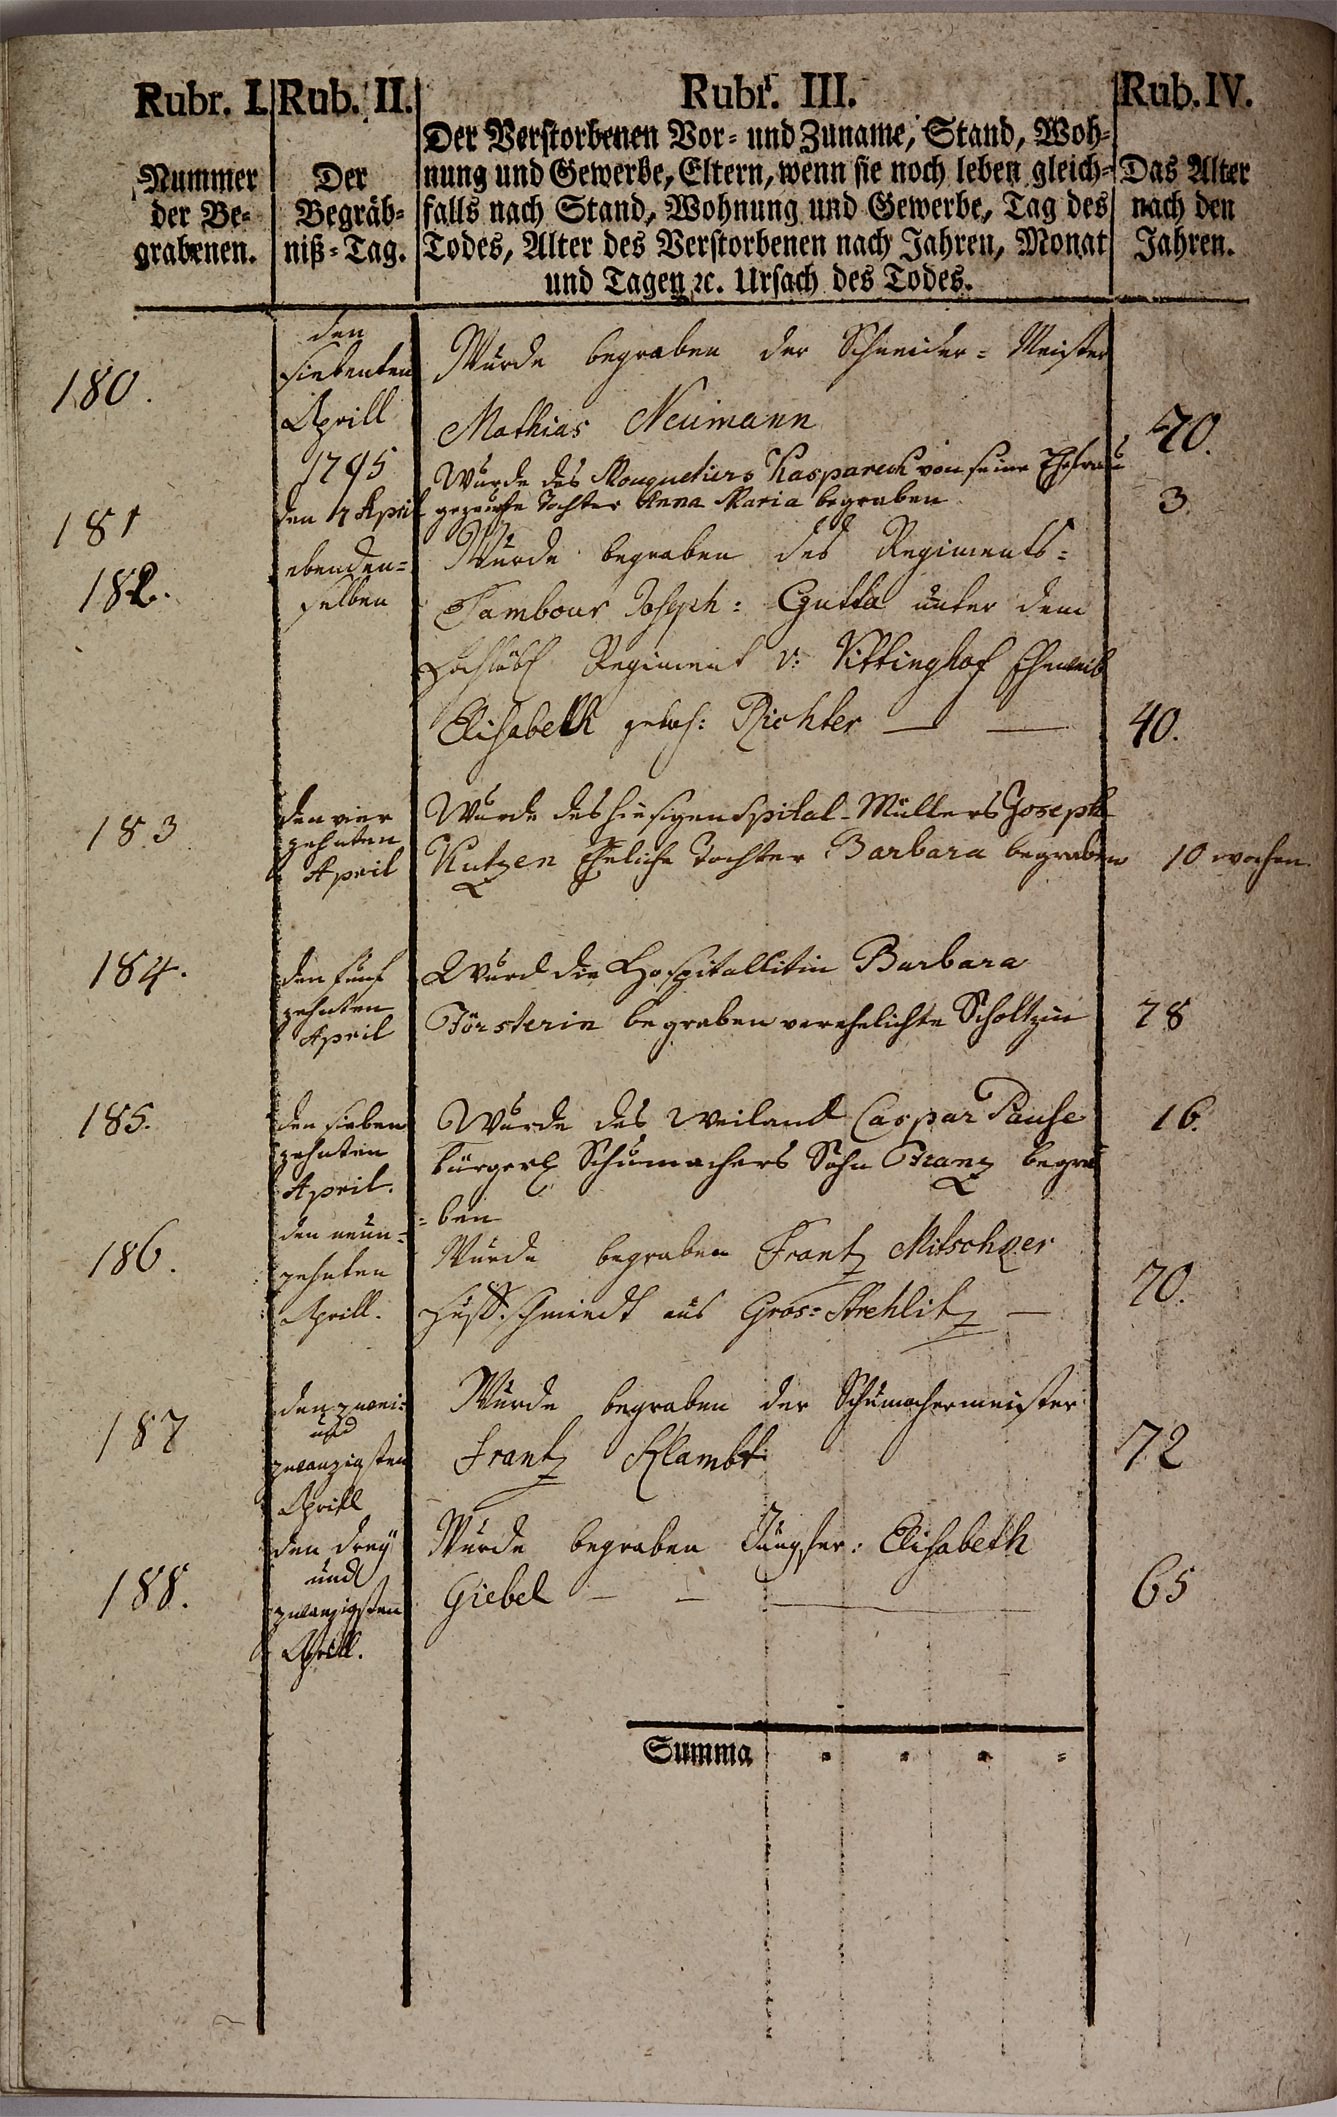 Rubr. I.
Nummer
der Be-
grabenen.
Rub. II.
Der
Begräb-
niß-Tag.
Rubr. III.
Der Verstorbenen Vor- und Zuname, Stand, Woh-
nung und Gewerbe, Eltern, wenn sie noch leben gleich-
falls nach Stand, Wohnung und Gewerbe, Tag des
Todes, Alter des Verstorbenen nach Jahren, Monat
und Tagen ꝛc. Ursach des Todes.
Rub. IV.
Das Alter
nach den
Jahren.
180.
den
siebenten
Aprill
1795
Wurde begraben der Schneider-Meister
Mathias Neumann
70.
181
den 7 April
Wurde des Mousquetiers Kaspareck von seiner Ehefrau
gezeugte Tochter Anna Maria begraben
3.
182.
ebenden-
selben
Wurde begraben des Regiments-
Tambour Joseph: Gutta unter dem
Hochlöbl Regiment v: Vittinghof Eheweib
Elisabeth geboh: Richter
40.
183
den vier
zehnten
April
Wurde des hiesigen Spital-Müllers Joseph
Kutzen Eheliche Tochter Barbara begraben
10 wochen.
184.
den fünf
zehnten
April
Wurd die Hospitallitin Barbara
Försterin begraben verehelichte Scholtzin
78
185.
den sieben
zehnten
April.
Wurde des weiland Caspar Pause
bürgerl Schumachers Sohn Frantz begra
-ben
16.
186.
den neun-
zehnten
Aprill.
Wurde begraben Frantz Mitschker
Hufschmiedt aus Gros-Strehlitz
70.
187
den zwei-
und
zwanzigsten
Aprill
Wurde begraben der Schumachermeister
Frantz Klambt
72
188.
den drey
und
zwanzigsten
Aprill.
Wurde begraben Jungfer: Elisabeth
Giebel
65
Summa